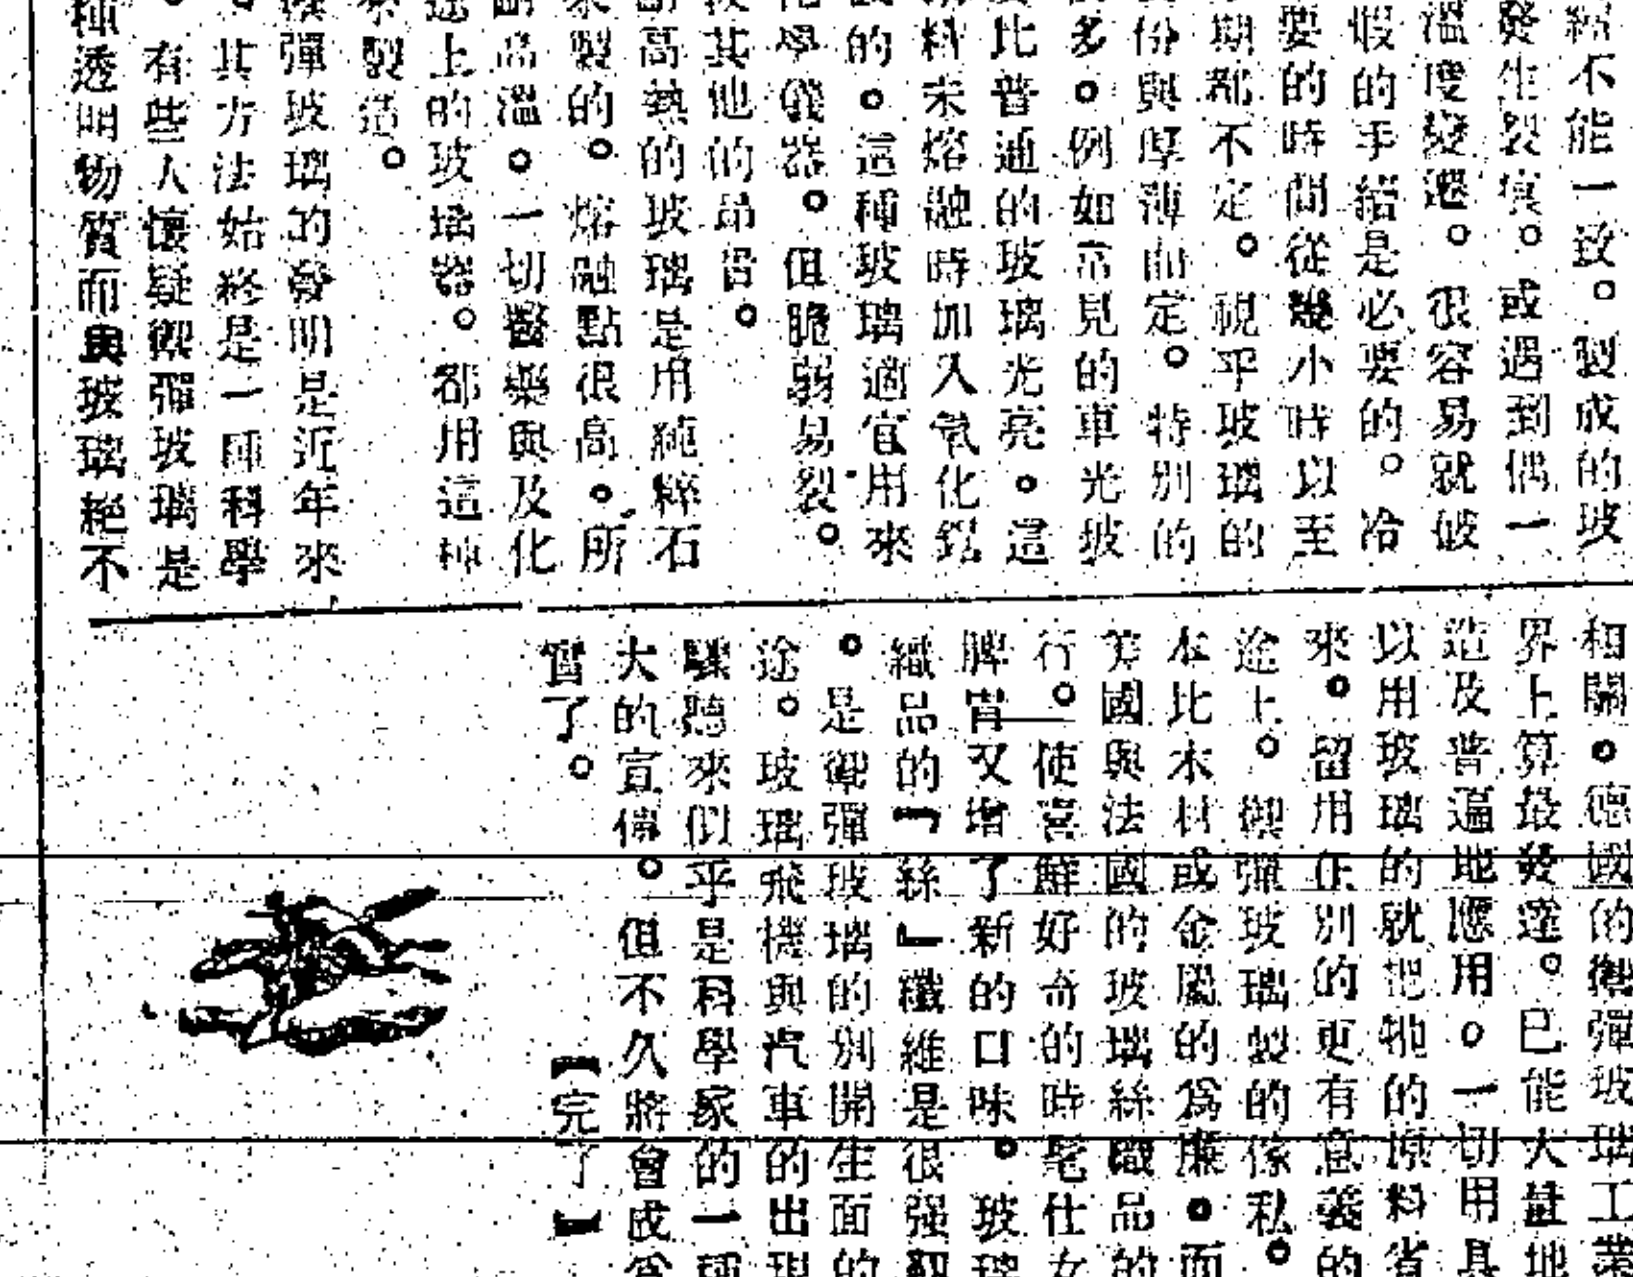 不能一致。製成的玻
發生裂痕。或遇到偶一
溫度變遷。很容易就破
的手續是必要的。冷
要的時間從幾小時以至
期都不定。視乎玻璃的
份與厚薄而定。特別的
多。例如常見的車光玻
比普通的玻璃光亮。這
料未熔融時加入氧化鉛
的。這種玻璃適宜用來
化學儀器。但脆弱易裂。
其他的品音。
高熱的玻璃是用純粹石
製的。熔融點很高。所
高溫。一切醫藥與及化
途上的玻璃器。都用這種
製造。
彈玻璃的發明是近年來
其方法始終是一種科學
。有些人懷疑禦彈玻璃是
種透明物質而與玻璃絕不
相關。德國的禦彈玻璃工業
界上算最發達。已能大量地
造及普遍地應用。一切用具
以用玻璃的就把牠的原料省
來。留用在別的更有意義的
途上。禦彈玻璃製的傢私。
本比木材或金屬的為廉。而
美國與法國的玻璃絲織品的
行。使喜鮮好奇的時髦仕女
脾胃又增了新的口味。玻璃
織品的『絲』纖維是很强韌
。是禦彈玻璃的別開生面的
途。玻璃飛機與汽車的出現
驟聽來似乎是科學家的一種
大的宣傳。但不久將會成為
實了。
【完了】